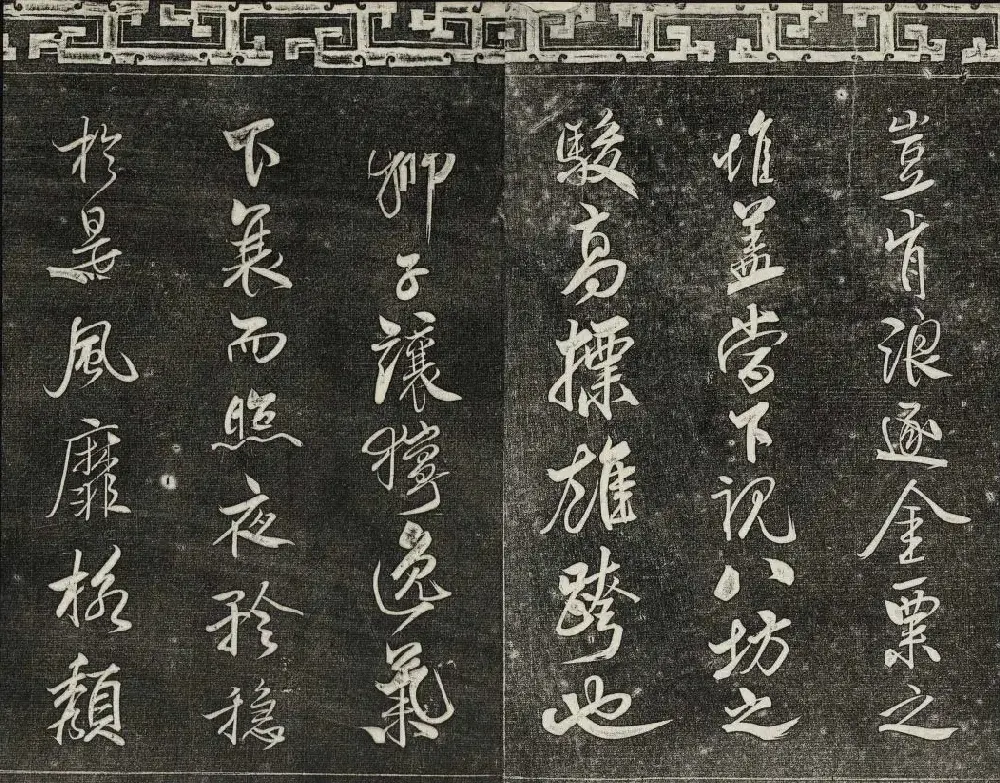 豈肯浪逐金粟之
堆盖當下視八坊之
駿高摽雄跨也
獅子讓獰逸氣
下衰而照夜矜穩
於是風靡格頽